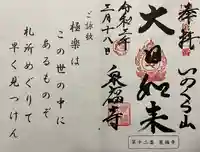 奉拝
いのくち山
大日如来
泉福寺
令和二年
三月十八日
ご詠歌
極楽は
この世の中に
あるものぞ
札所めぐりて
早く見つけん
第十二番 泉福寺